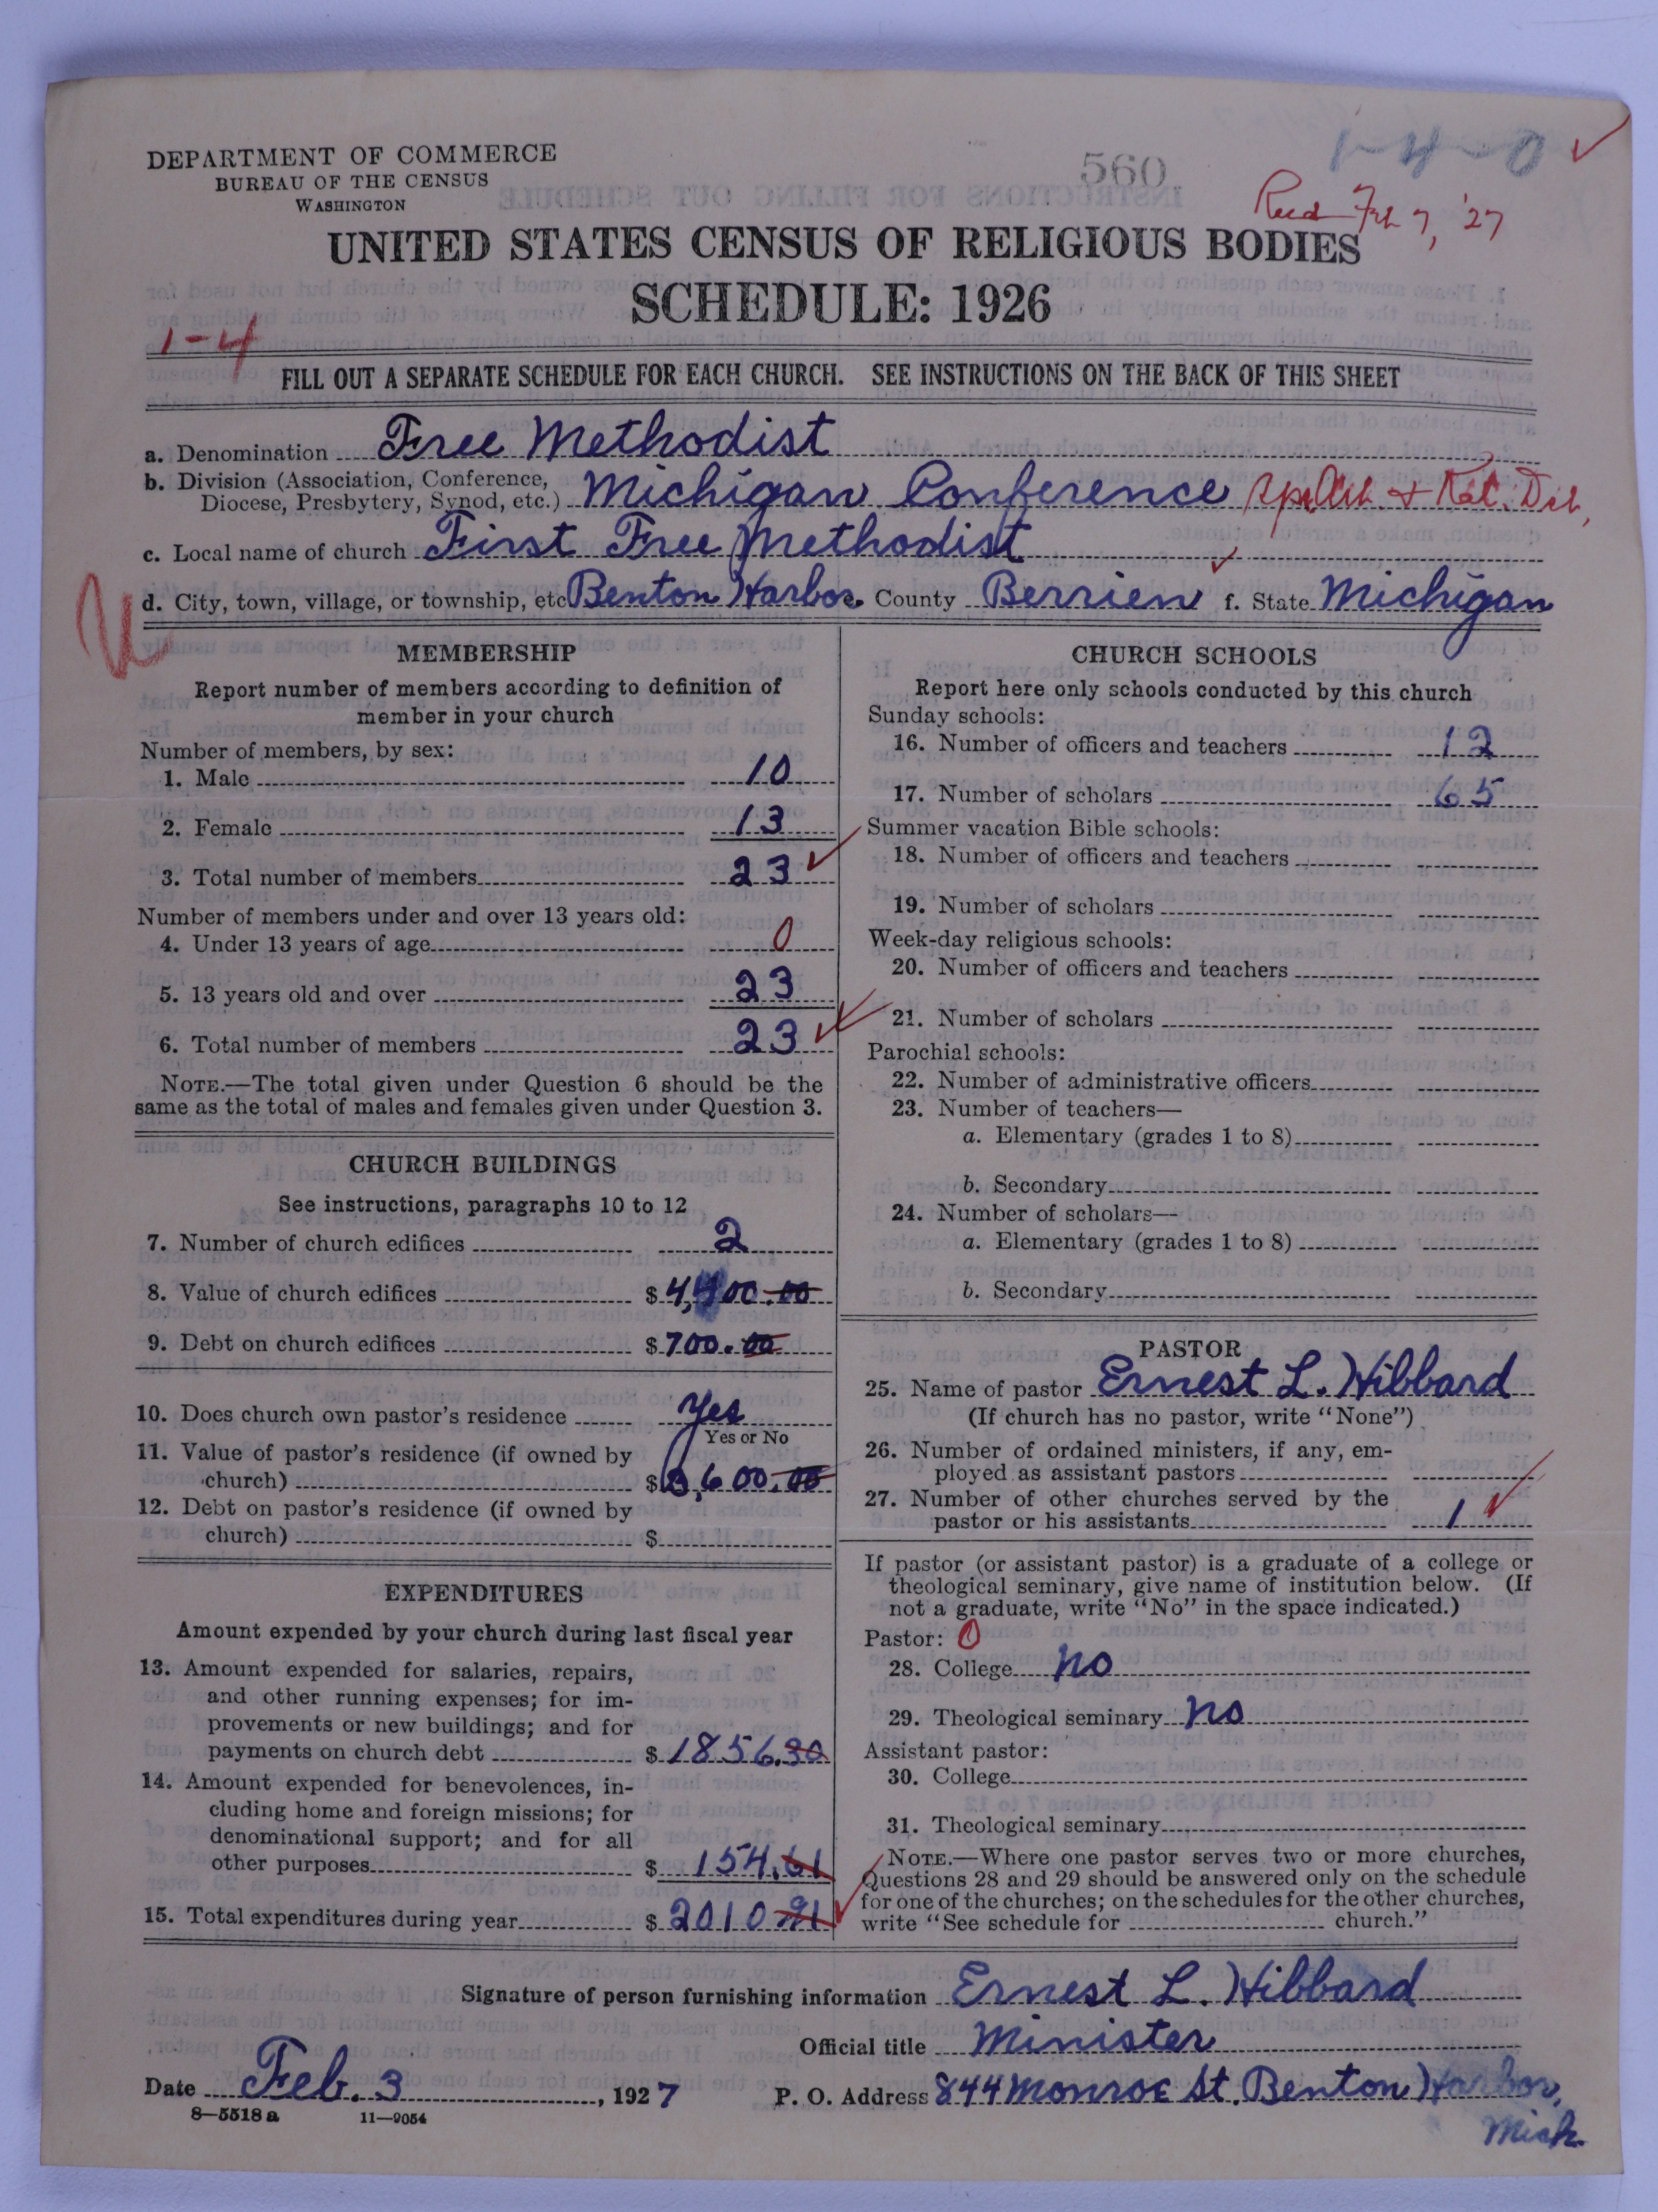 1-4-0
DEPARTMENT OF COMMERCE
BUREAU OF THE CENSUS
WASHINGTON
560
Recd Feb 7, '27
UNITED STATES CENSUS OF RELIGIOUS BODIES
SCHEDULE: 1926
1-4
FILL OUT A SEPARATE SCHEDULE FOR EACH CHURCH. SEE INSTRUCTIONS ON THE BACK OF THIS SHEET
a. Denomination Free Methodist
b. Division (Association, Conference,
Diocese, Presbytery, Synod, etc.) Michigan Conference
c. Local name of church First Free Methodist
d. City, town, village, or township, etc Benton Harbor e. County Berrien f. State Michigan
U
MEMBERSHIP
Report number of members according to definition of
member in your church
Number of members, by sex:
1. Male 10
2. Female 13
3. Total number of members 23
Number of members under and over 13 years old:
4. Under 13 years of age 0
5. 13 years old and over 23
6. Total number of members 23
NOTE.—The total given under Question 6 should be the
same as the total of males and females given under Question 3.
CHURCH BUILDINGS
See instructions, paragraphs 10 to 12
7. Number of church edifices 2
8. Value of church edifices $4,400.00
9. Debt on church edifices $700.00
10. Does church own pastor's residence Yes
Yes or No
11. Value of pastor's residence (if owned by
church) $ 3,600.00
12. Debt on pastor's residence (if owned by
church) $
EXPENDITURES
Amount expended by your church during last fiscal year
13. Amount expended for salaries, repairs,
and other running expenses; for im-
provements or new buildings; and for
payments on church debt $ 1856.30
14. Amount expended for benevolences, in-
cluding home and foreign missions; for
denominational support; and for all
other purposes $ 154.61
15. Total expenditures during year $ 2010.91
CHURCH SCHOOLS
Report here only schools conducted by this church
Sunday schools:
16. Number of officers and teachers 12
17. Number of scholars 65
Summer vacation Bible schools:
18. Number of officers and teachers
19. Number of scholars
Week-day religious schools:
20. Number of officers and teachers
21. Number of scholars
Parochial schools:
22. Number of administrative officers
23. Number of teachers—
a. Elementary (grades 1 to 8)
b. Secondary
24. Number of scholars—
a. Elementary (grades 1 to 8)
b. Secondary
PASTOR
25. Name of pastor Ernest L. Hibbard
(If church has no pastor, write "None")
26. Number of ordained ministers, if any, em-
ployed as assistant pastors
27. Number of other churches served by the
pastor or his assistants 1
If pastor (or assistant pastor) is a graduate of a college or
theological seminary, give name of institution below. (If
not a graduate, write "No" in the space indicated.)
Pastor: 0
28. College no
29. Theological seminary no
Assistant pastor:
30. College
31. Theological seminary
NOTE.—Where one pastor serves two or more churches,
Questions 28 and 29 should be answered only on the schedule
for one of the churches; on the schedules for the other churches,
write "See schedule for church."
Signature of person furnishing information Ernest L. Hibbard
Official title Minister
Date Feb. 3, 1927 P. O. Address 844 Monroe St. Benton Harbor,
Mich.
8—5518 a 11—9054